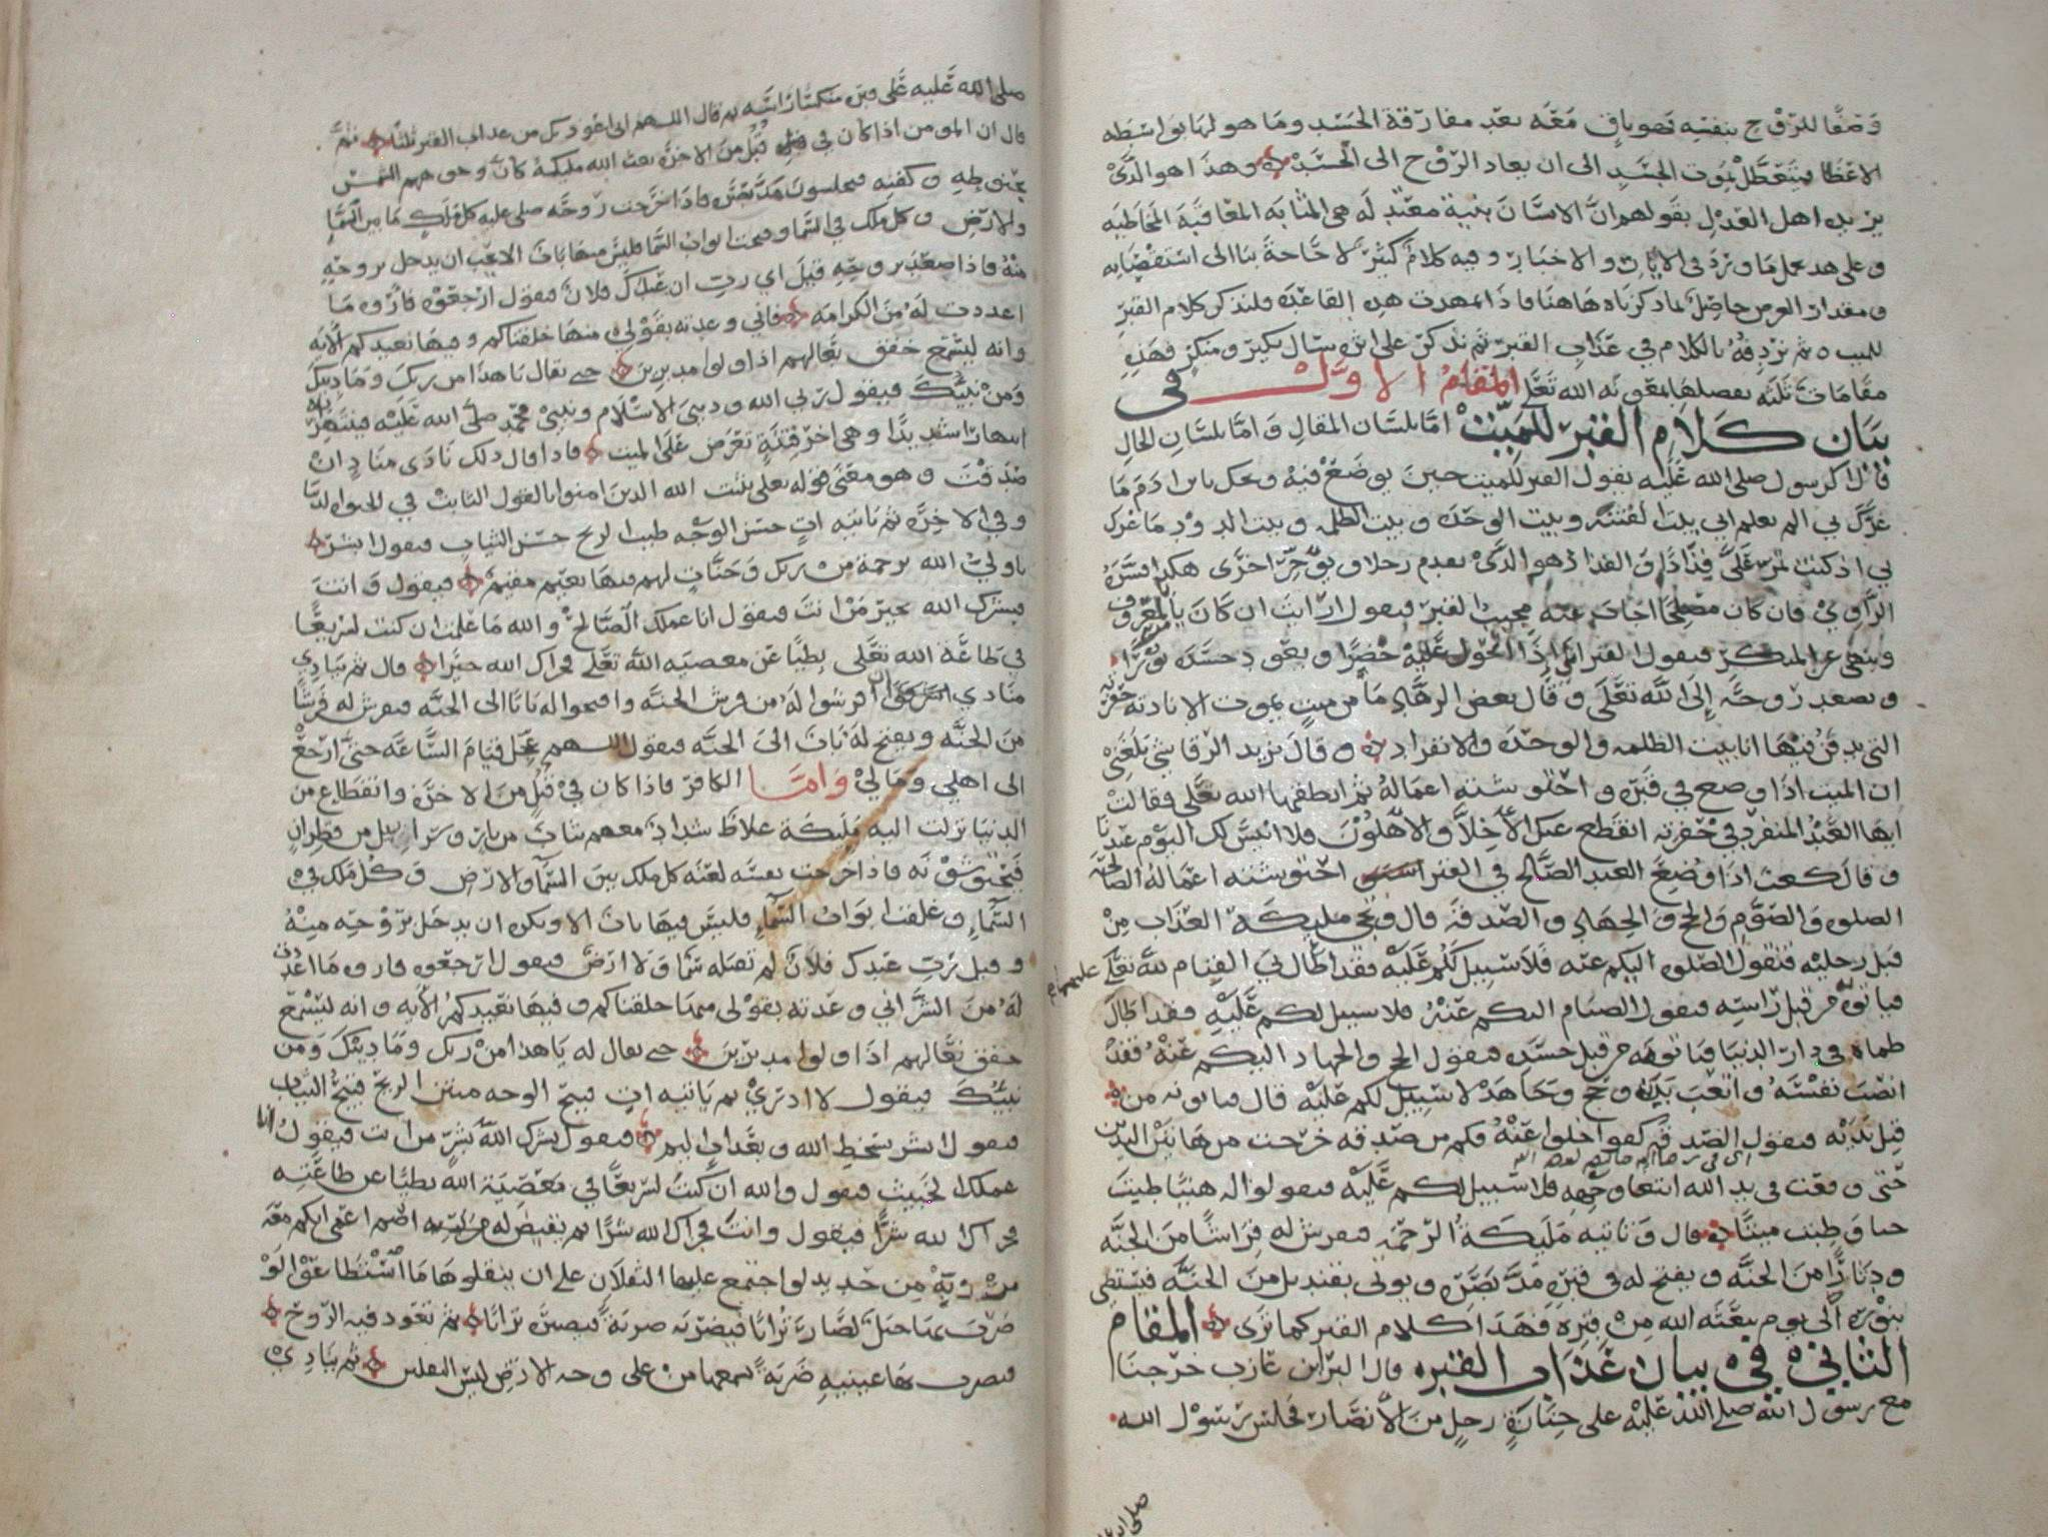 وصفا للروح بنفسه فهو باق معه بعد مفارقة الجسد وما هو لها بواسطه
الاعضا فيتعطل بموت الجسد الى ان يعاد الروح الى الجسد وهذا هو الذي
يريد اهل العدل بقولهم ان الانسان بنية معتبد له هي المثابه المعاقبه المخاطبه
وعلى هذا يحمل ما ورد في الايات والاخبار وفيه كلام كثير لا حاجة بنا الى استقصايه
ومقدار الغرض حاصل بما ذكرناه هاهنا فاذا تمهدت هذه القاعده فلنذكر كلام القبر
للميت ثم نردفه بالكلام في عذاب القبر ثم نذكر على اثره سوال نكير ومنكر فهذه
مقامات ثلثه نفصلها بمعونة الله تعلى المقام الاول في
بيان كلام القبر للميت اما بلسان المقال واما بلسان الحال
قال رسول صلى الله عليه يقول القبر للميت حين يوضع فيه ويحك يابن ادم ما
غرك بي الم تعلم اني بيت الفتنه وبيت الوحده وبيت الظلمه وبيت الدود ما غرك
بي اذ كنت تمر علي فذاذا والفذاذ هو الذي يقدم رجلا ويوخر اخرى هكذا فسره
الراوي فان كان مصلحا اجاب عنه مجيب القبر فيقول ارايت ان كان يامر بالمعروف
وينهى عن المنكر فيقول القبر اني اذا اتحول عليه خضرا ويعود جسده نورا
ويصعد روحه الى الله تعلى وقال بعض الزهاد ما من ميت يموت الا نادته حفرته
التي يدفن فيها انا بيت الظلمه والوحده والانفراد وقال يزيد الرقاشي بلغني
ان الميت اذا وضع في قبره واحتوشته اعماله ثم انطقها الله تعلى فقالت
ايها العبد المنفرد في حفرته انقطع عنك الاخلا والاهلون فلا انيس لك اليوم عندنا
وقال كعب اذا وضع العبد الصالح في القبر احتوشته اعماله الصالحه
الصلوه والصوم والحج والجهاد والصدقه قال وتجي مليكة العذاب من
قبل رجليه فتقول الصلوه اليكم عنه فلا سبيل لكم عليه فقد اطال بي القيام لله تعلى عليهما
فياتون من قبل راسه فيقول الصيام اليكم عنه فلا سبيل لكم عليه فقد اطال
ظماه في دار الدنيا فياتونه من قبل جسده فيقول الحج والجهاد اليكم عنه فقد
انصب نفسه واتعب بدنه وحج وجاهد لا سبيل لكم عليه قال فياتونه من
قبل يديه فيقول الصدقه كفوا خلوا عنه فكم من صدقه خرجت من هاتين اليدين
حتى وقعت في يد الله ابتغا وجهه فلا سبيل لكم عليه فيقولوا له هنيا طبت
حيا وطبت ميتا قال وتاتيه مليكة الرحمه فيفرش له فراشا من الجنه
ودثارا من الجنه ويفتح له في قبره مد بصره ويوتى بقنديل من الجنه فيستضي
بنوره الى يوم يبعثه الله من قبره فهذا كلام القبر كما ترى المقام
الثاني في بيان عذاب القبر قال البرا بن عازب خرجنا
مع رسول الله صلى الله عليه على جنازة رجل من الانصار فجلس رسول الله
صلى الله عليه على قبره منكسا راسه ثم قال اللهم اني اعوذ بك من عذاب القبر ثلثا ثم
قال ان المومن اذا كان في قبل من الاخره بعث الله مليكة كان وجوههم الشمس
بحنوطه وكفنه فيجلسون مد بصره فاذا خرجت روحه صلى عليه كل ملك ما بين السما
والارض وكل ملك في السما وفتحت ابواب السما فليس منها باب الا يحب ان يدخل بروحه
منه فاذا صعد بروحه قيل اي رب ان عبدك فلان فيقول ارجعوه فاروه ما
اعددت له من الكرامه فاني وعدته بقولي منها خلقناكم وفيها نعيدكم الايه
وانه ليسمع خفق نعالهم اذا ولوا مدبرين حتى يقال يا هذا من ربك وما دينك
ومن نبيك فيقول ربي الله وديني الاسلام ونبيي محمد صلى الله عليه فينتهرانه
انتهارا شديدا وهي اخر فتنة تعرض على الميت فاذا قال ذلك نادى مناد ان
صدقت وهو معنى قوله تعلى يثبت الله الذين امنوا بالقول الثابت في الحيوه الدنيا
وفي الاخره ثم ياتيه ات حسن الوجه طيب الريح حسن الثياب فيقول ابشر
يا ولي الله برحمة من ربك وجنات لهم فيها نعيم مقيم فيقول وانت
فبشرك الله بخير من انت فيقول انا عملك الصالح والله ما علمت ان كنت لسريعا
في طاعة الله تعلى بطيا عن معصية الله تعلى فجزاك الله خيرا قال ثم ينادي
منادي ان افرشوا له من فرش الجنه وافتحوا له بابا الى الجنه فيفرش له فرشا
من الجنه ويفتح له باب الى الجنه فيقول اللهم عجل قيام الساعه حتى ارجع
الى اهلي ومالي واما الكافر فاذا كان في قبل من الاخره وانقطاع من
الدنيا نزلت اليه مليكة غلاظ شداد معهم ثياب من نار وسرابيل من قطران
فيحتوشونه فاذا خرجت نفسه لعنه كل ملك بين السما والارض وكل ملك في
السما وغلقت ابواب السما فليس فيها باب الا ويكره ان يدخل بروحه منه
وقيل رب عبدك فلان لم تقبله سما ولا ارض فيقول ارجعوه فاروه ما اعددت
له من الشر اني وعدته بقولي منها خلقناكم وفيها نعيدكم الايه وانه ليسمع
خفق نعالهم اذا ولوا مدبرين حتى يقال له يا هذا من ربك وما دينك ومن
نبيك فيقول لا ادري ثم ياتيه ات قبيح الوجه منتن الريح قبيح الثياب
فيقول ابشر بسخط الله وبعذاب اليم فيقول بشرك الله بشر من انت فيقول انا
عملك الخبيث فيقول والله ان كنت لسريعا في معصية الله بطيا عن طاعته
فجزاك الله شرا فيقول وانت فجزاك الله شرا ثم يقيض له اصم اعمى ابكم معه
مرزبة من حديد لو اجتمع عليها الثقلان على ان ينقلوها ما استطاعوا لو
ضرب بها جبل لصار ترابا فيضربه ضربة فيصير ترابا ثم تعود فيه الروح
فيضرب بها عينيه ضربة يسمعها من على وجه الارض ليس الثقلين ثم ينادي